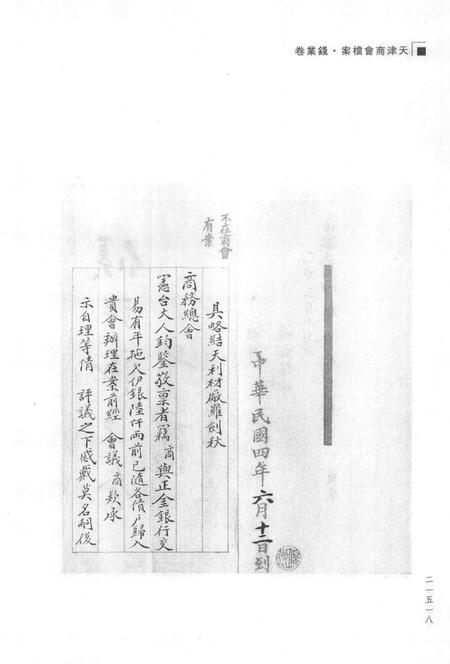 天津商會檔案·錢業卷
中華民國四年六月十二日到
不在商會
有案
具略結天利材廠羅劍秋
商務總會
憲台大人鈞鑒敬稟者竊商與正金銀行交
易有年拖欠伊銀陸仟兩前已隨各債戶歸入
貴會辦理在案前經會議商欵承
示自理等情評議之下感戴莫名嗣後
二一五一八